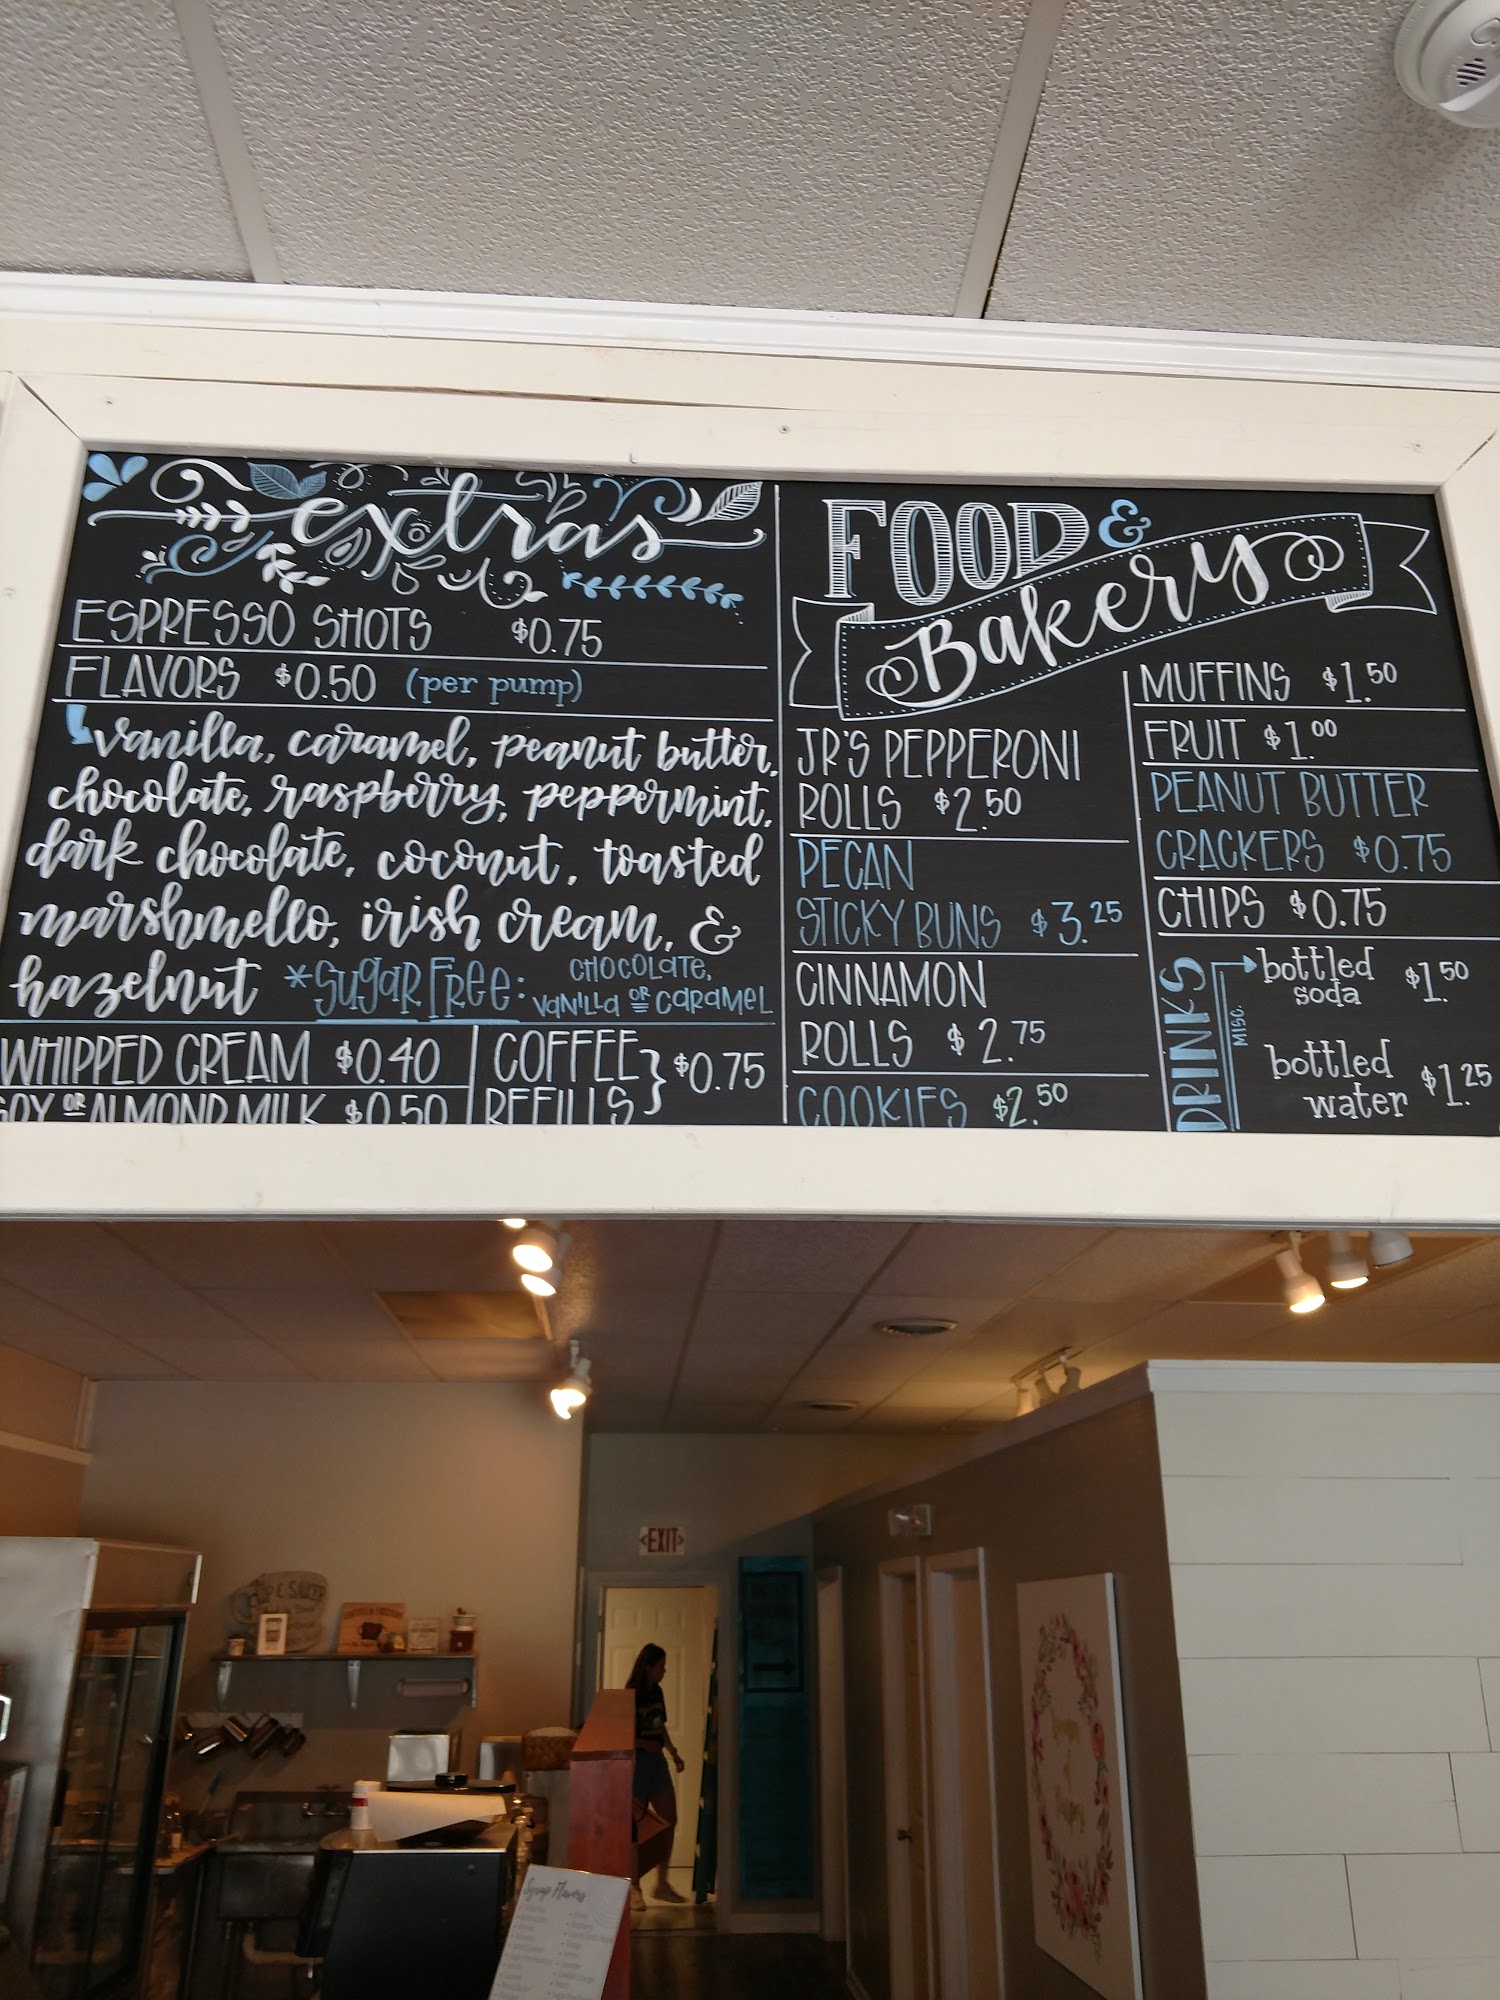 extras
ESPRESSO SHOTS $0.75
FLAVORS $0.50 (per pump)
vanilla, caramel, peanut butter,
chocolate, raspberry, peppermint,
dark chocolate, coconut, toasted
marshmello, irish cream, &
hazelnut *Sugar Free: CHOCOLATE,
VANILLA OR CARAMEL
WHIPPED CREAM $0.40
SOY OR ALMOND MILK $0.50
COFFEE
REFILLS } $0.75
FOOD &
Bakery
JR'S PEPPERONI
ROLLS $2.50
PECAN
STICKY BUNS $3.25
CINNAMON
ROLLS $2.75
COOKIES $2.50
MUFFINS $1.50
FRUIT $1.00
PEANUT BUTTER
CRACKERS $0.75
CHIPS $0.75
MISC. DRINKS
bottled
soda $1.50
bottled
water $1.25
EXIT
Syrup Flavors